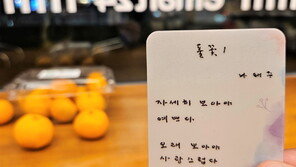 풀꽃 1
나태주
자세히 보아야
예쁘다.
오래 보아야
사랑스럽다